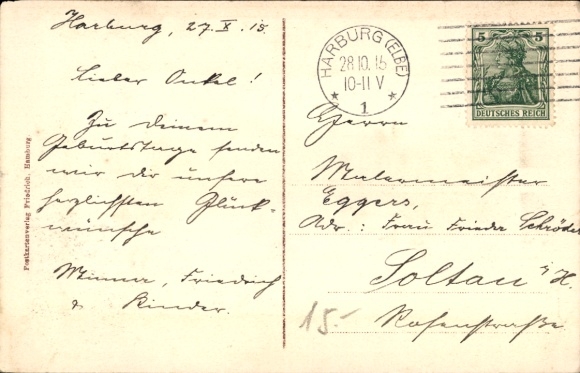 Harburg, 27.X.15.
Lieber Onkel!
Zu Deinem
Geburtstage senden
wir Dir unsere
herzlichsten Glück-
wünsche
Minna, Friedrich
& Kinder.
Postkartenverlag Friedrich, Hamburg.
HARBURG (ELBE)
28.10.15
10-11 V
* 1 *
5 5
DEUTSCHES REICH
Herrn
Malermeister
Eggers,
Adr.: Frau Frieda Schröder
Soltau i/H.
Rosenstraße
15.-